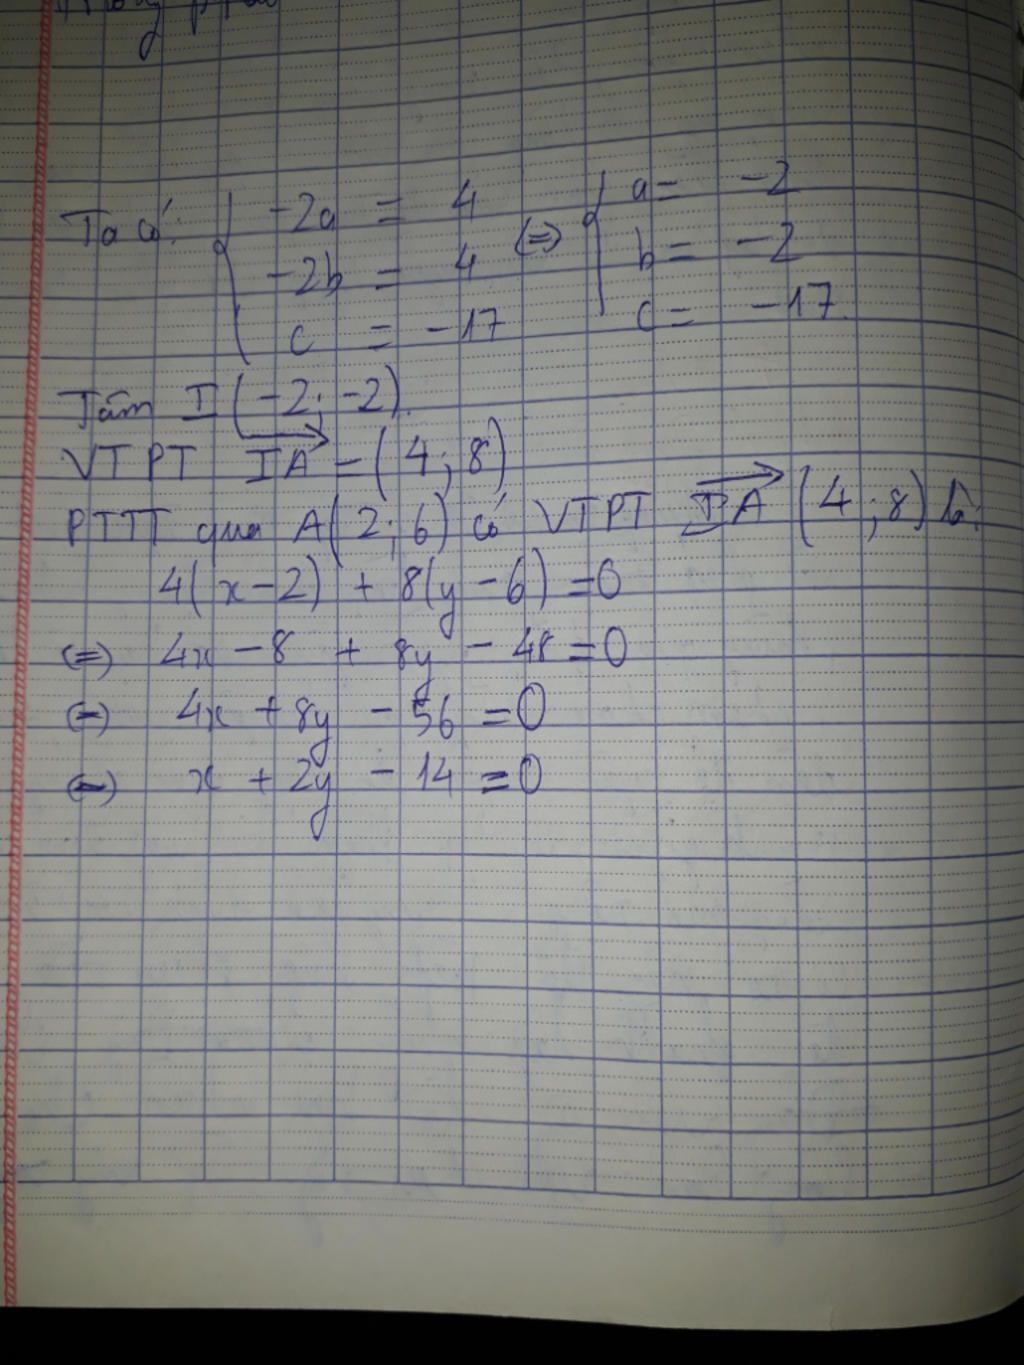 Ta có: { -2a = 4 (=) { a = -2
-2b = 4 b = -2
c = -17 c = -17.
Tâm I (-2; -2).
VTPT IA = (4; 8)
PTTT qua A(2; 6) có VTPT IA (4; 8) là:
4(x-2) + 8(y-6) = 0
(=) 4x - 8 + 8y - 48 = 0
(=) 4x + 8y - 56 = 0
(=) x + 2y - 14 = 0